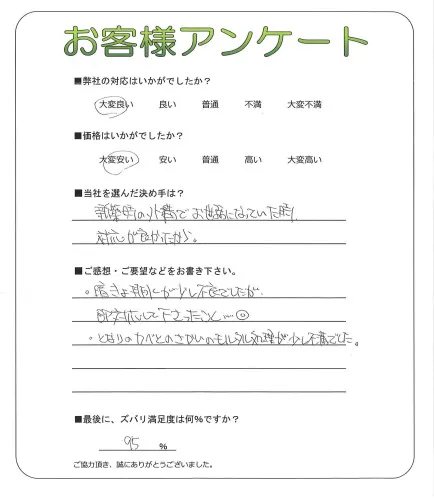 お客様アンケート
■弊社の対応はいかがでしたか？
大変良い 良い 普通 不満 大変不満
■価格はいかがでしたか？
大変安い 安い 普通 高い 大変高い
■当社を選んだ決め手は？
の外構でお世話になっていた時、
対応が良かったから。
■ご感想・ご要望などをお書き下さい。
が少し不良でしたが、
即対応して下さったこと…☺
・となりのカベとのさかいのモルタル処理が少し不満でした。
■最後に、ズバリ満足度は何％ですか？
95 ％
ご協力頂き、誠にありがとうございました。